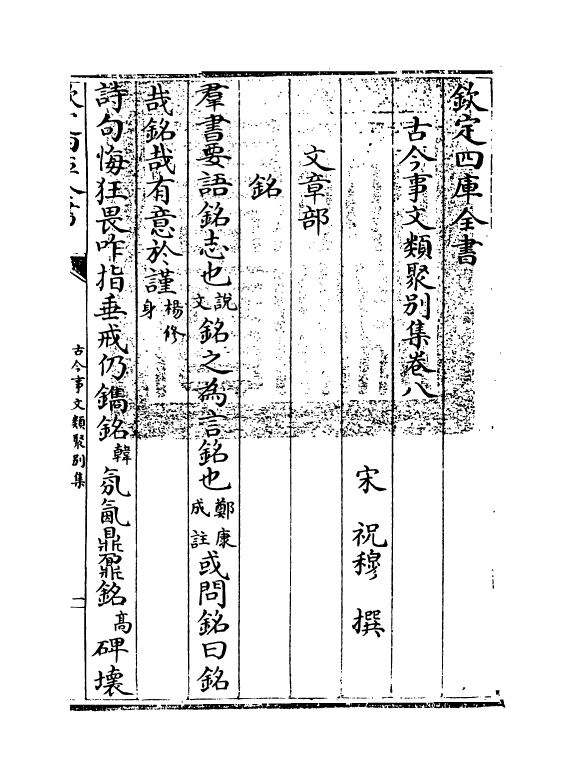 欽定四庫全書
古今事文類聚别集卷八
宋 祝穆 撰
文章部
銘
羣書要語銘志也說文銘之為言銘也鄭康成註或問銘曰銘
哉銘哉有意於謹楊修身
詩句悔狂畏咋指垂戒仍鐫銘韓氛氳鼎鼐銘高碑壊
古今事文類聚别集
一